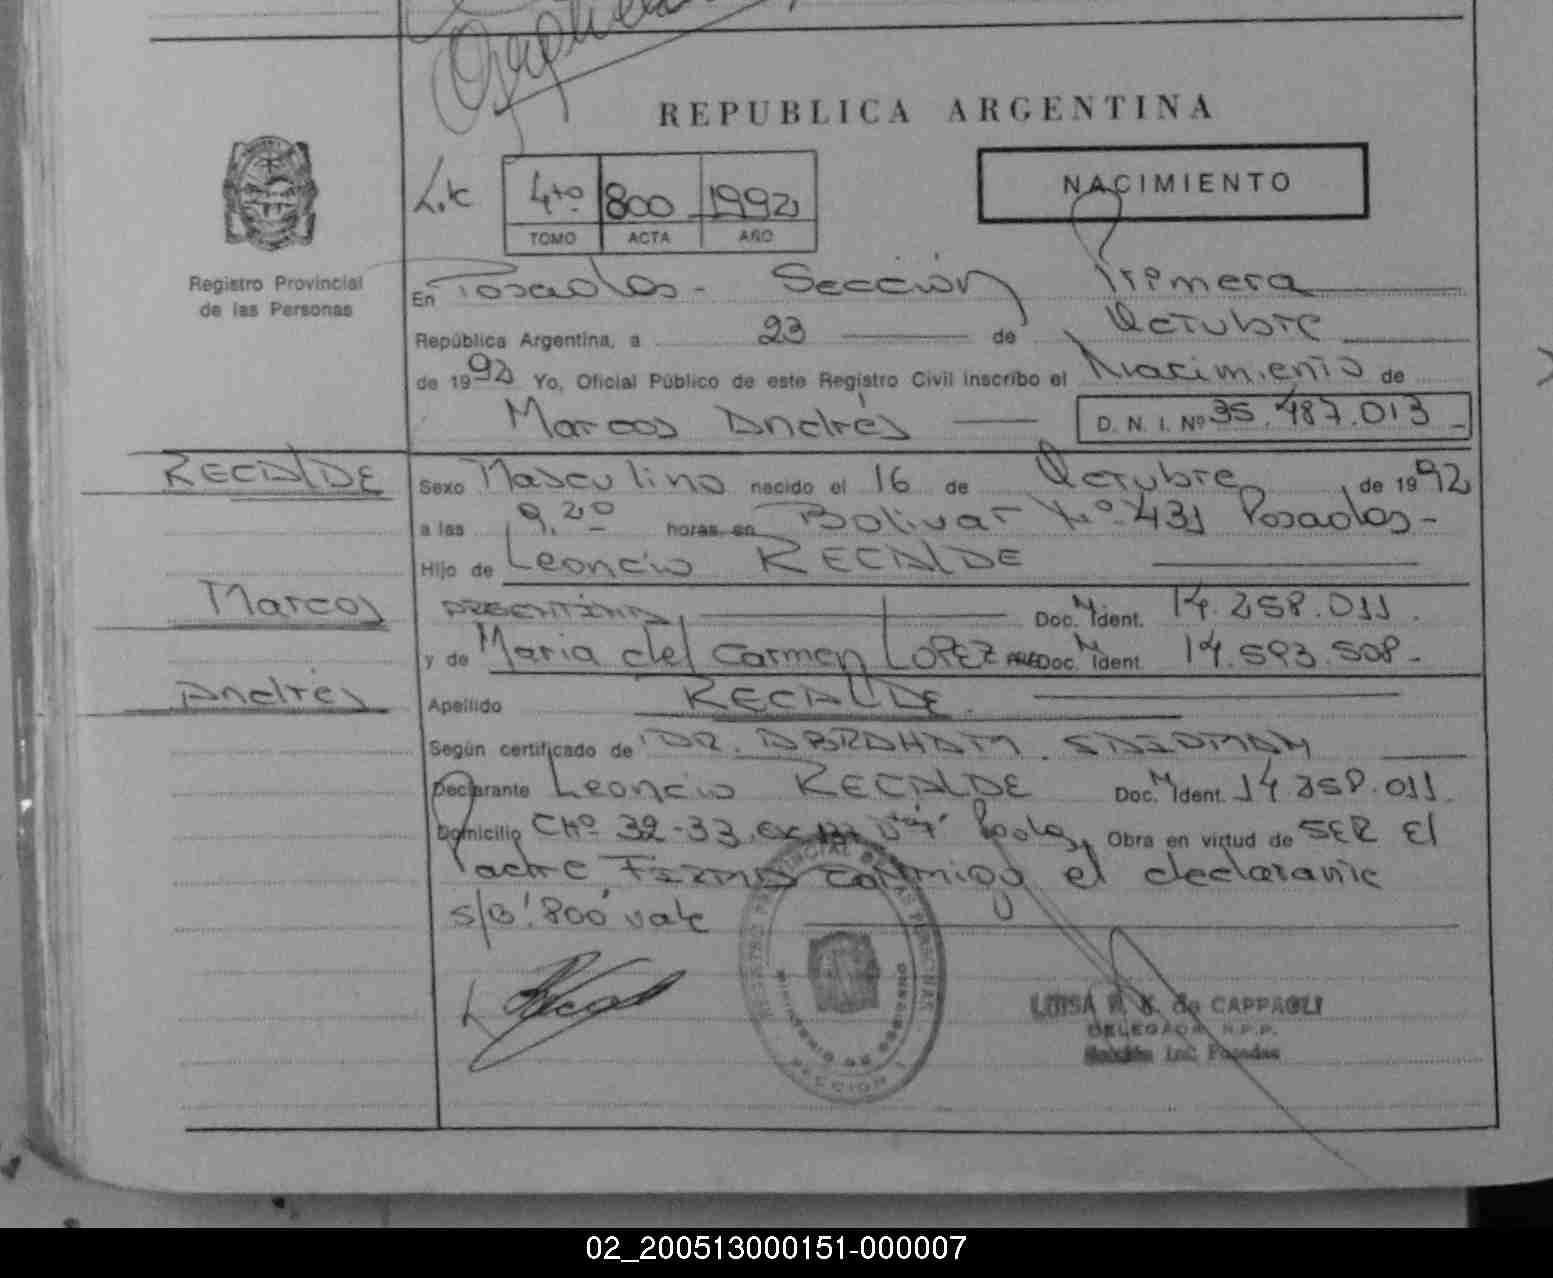 REPUBLICA ARGENTINA
NACIMIENTO
4to 800 1992
TOMO ACTA AÑO
Registro Provincial
de las Personas
En Posadas - Sección Primera
República Argentina, a 23 de Octubre
de 1992 Yo, Oficial Público de este Registro Civil inscribo el Nacimiento de
Marcos Andrés D. N. I. Nº 35.487.013
RECALDE
Sexo Masculino nacido el 16 de Octubre de 1992
a las 9,20 horas, en Bolivar Nº 431 Posadas-
Hijo de Leoncio RECALDE
Marcos
ARGENTINA, Doc. M Ident. 14.258.011.
y de Maria del Carmen LOPEZ Doc. M Ident. 14.593.508-
Andrés
Apellido RECALDE.
Según certificado de DR. ABRAHAM
Declarante Leoncio RECALDE Doc. M Ident. 14 258.011.
Domicilio CHº 32-33 Obra en virtud de SER El
Padre Firma conmigo el declarante
s/B: "800" vale
REGISTRO PROVINCIAL DE LAS PERSONAS
MINISTERIO DE GOBIERNO
SECCION 1
LUISA de CAPPAGLI
DELEGADA R.P.P.
Sección 1ra. Posadas
02_200513000151-000007